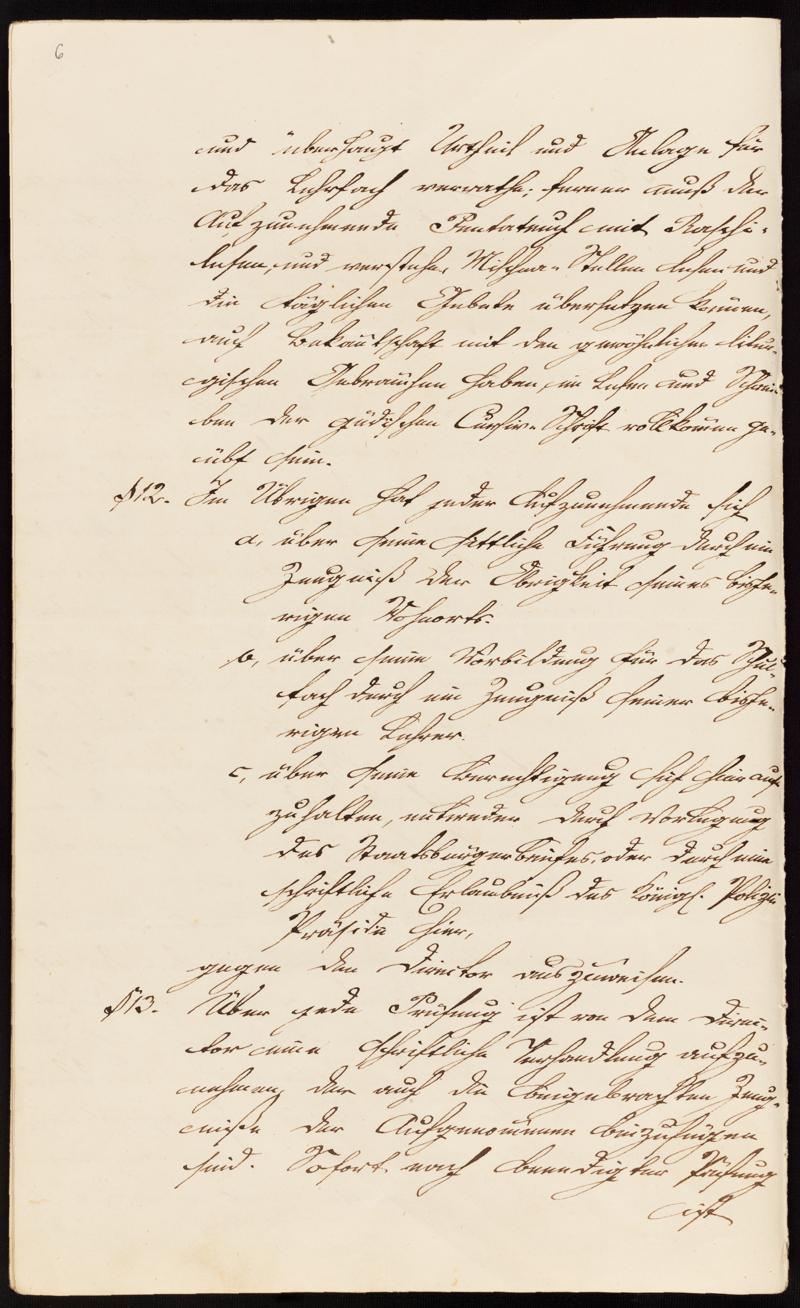 6
und überhaupt Urtheil und Anlage für
das Lehrfach verrathe; ferner muß der
Aufzunehmende Pentateuch mit Raschi
lesen, und verstehe, Mischna-Stellen lesen und
die täglichen Gebete übersetzen können,
auch Bekanntschaft mit den gewöhnlichen litur-
gischen Gebräuchen haben, im Lesen und Schrei-
ben der jüdischen Cursiv-Schrift vollkom̄en ge-
übt sein.
§ 12. Im Übrigen hat jeder Aufzunehmende sich
a, über seine sittliche Führung durch ein
Zeugniß der Obrigkeit seines bishe-
rigen Wohnorts.
b, über seine Vorbildung für das Schul-
fach durch ein Zeugniß seiner bishe-
rigen Lehrer.
c, über seine Berechtigung sich hier auf-
zuhalten, entweder durch Vorlegung
des Staatsbürgerbriefes, oder durch eine
schriftliche Erlaubniß des Königl. Polizei
Präsidii hier,
gegen den Director auszuweisen.
§ 13. Über jede Prüfung ist von dem Direc-
tor eine schriftliche Verhandlung aufzu-
nehmen, der auch die beigebrachten Zeug-
niße der Aufgenom̄enen beizufügen
sind. Sofort nach beendigter Prüfung
ist